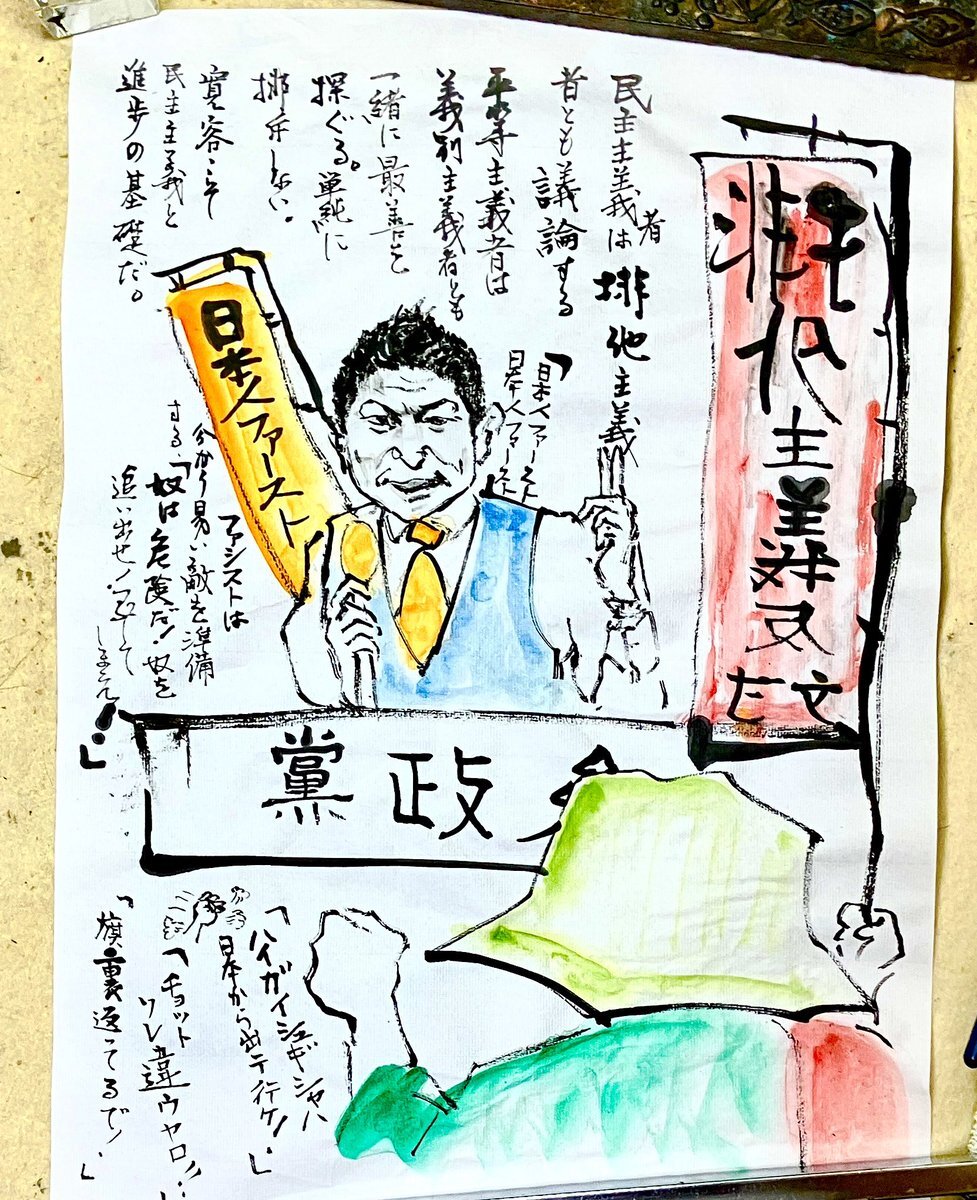 民主主義者は排他主義
者とも議論する
平等主義者は
差別主義者とも
一緒に最善を
探ぐる。単純に
排斥しない。
寛容こそ
民主主義と
進歩の基礎だ。
排他主義反対
「日本人ファースト
日本人ファースト」
日本人ファースト
ファシストは
分かり易い敵を準備
する、「奴は危険だ!奴を
追い出せ!殺して
しまえ!」
黨政
「ハイガイシュギシャハ
日本から出テ行ケ!」
「チョット
ソレ違ウヤロ!!
「旗裏返ってるで!」